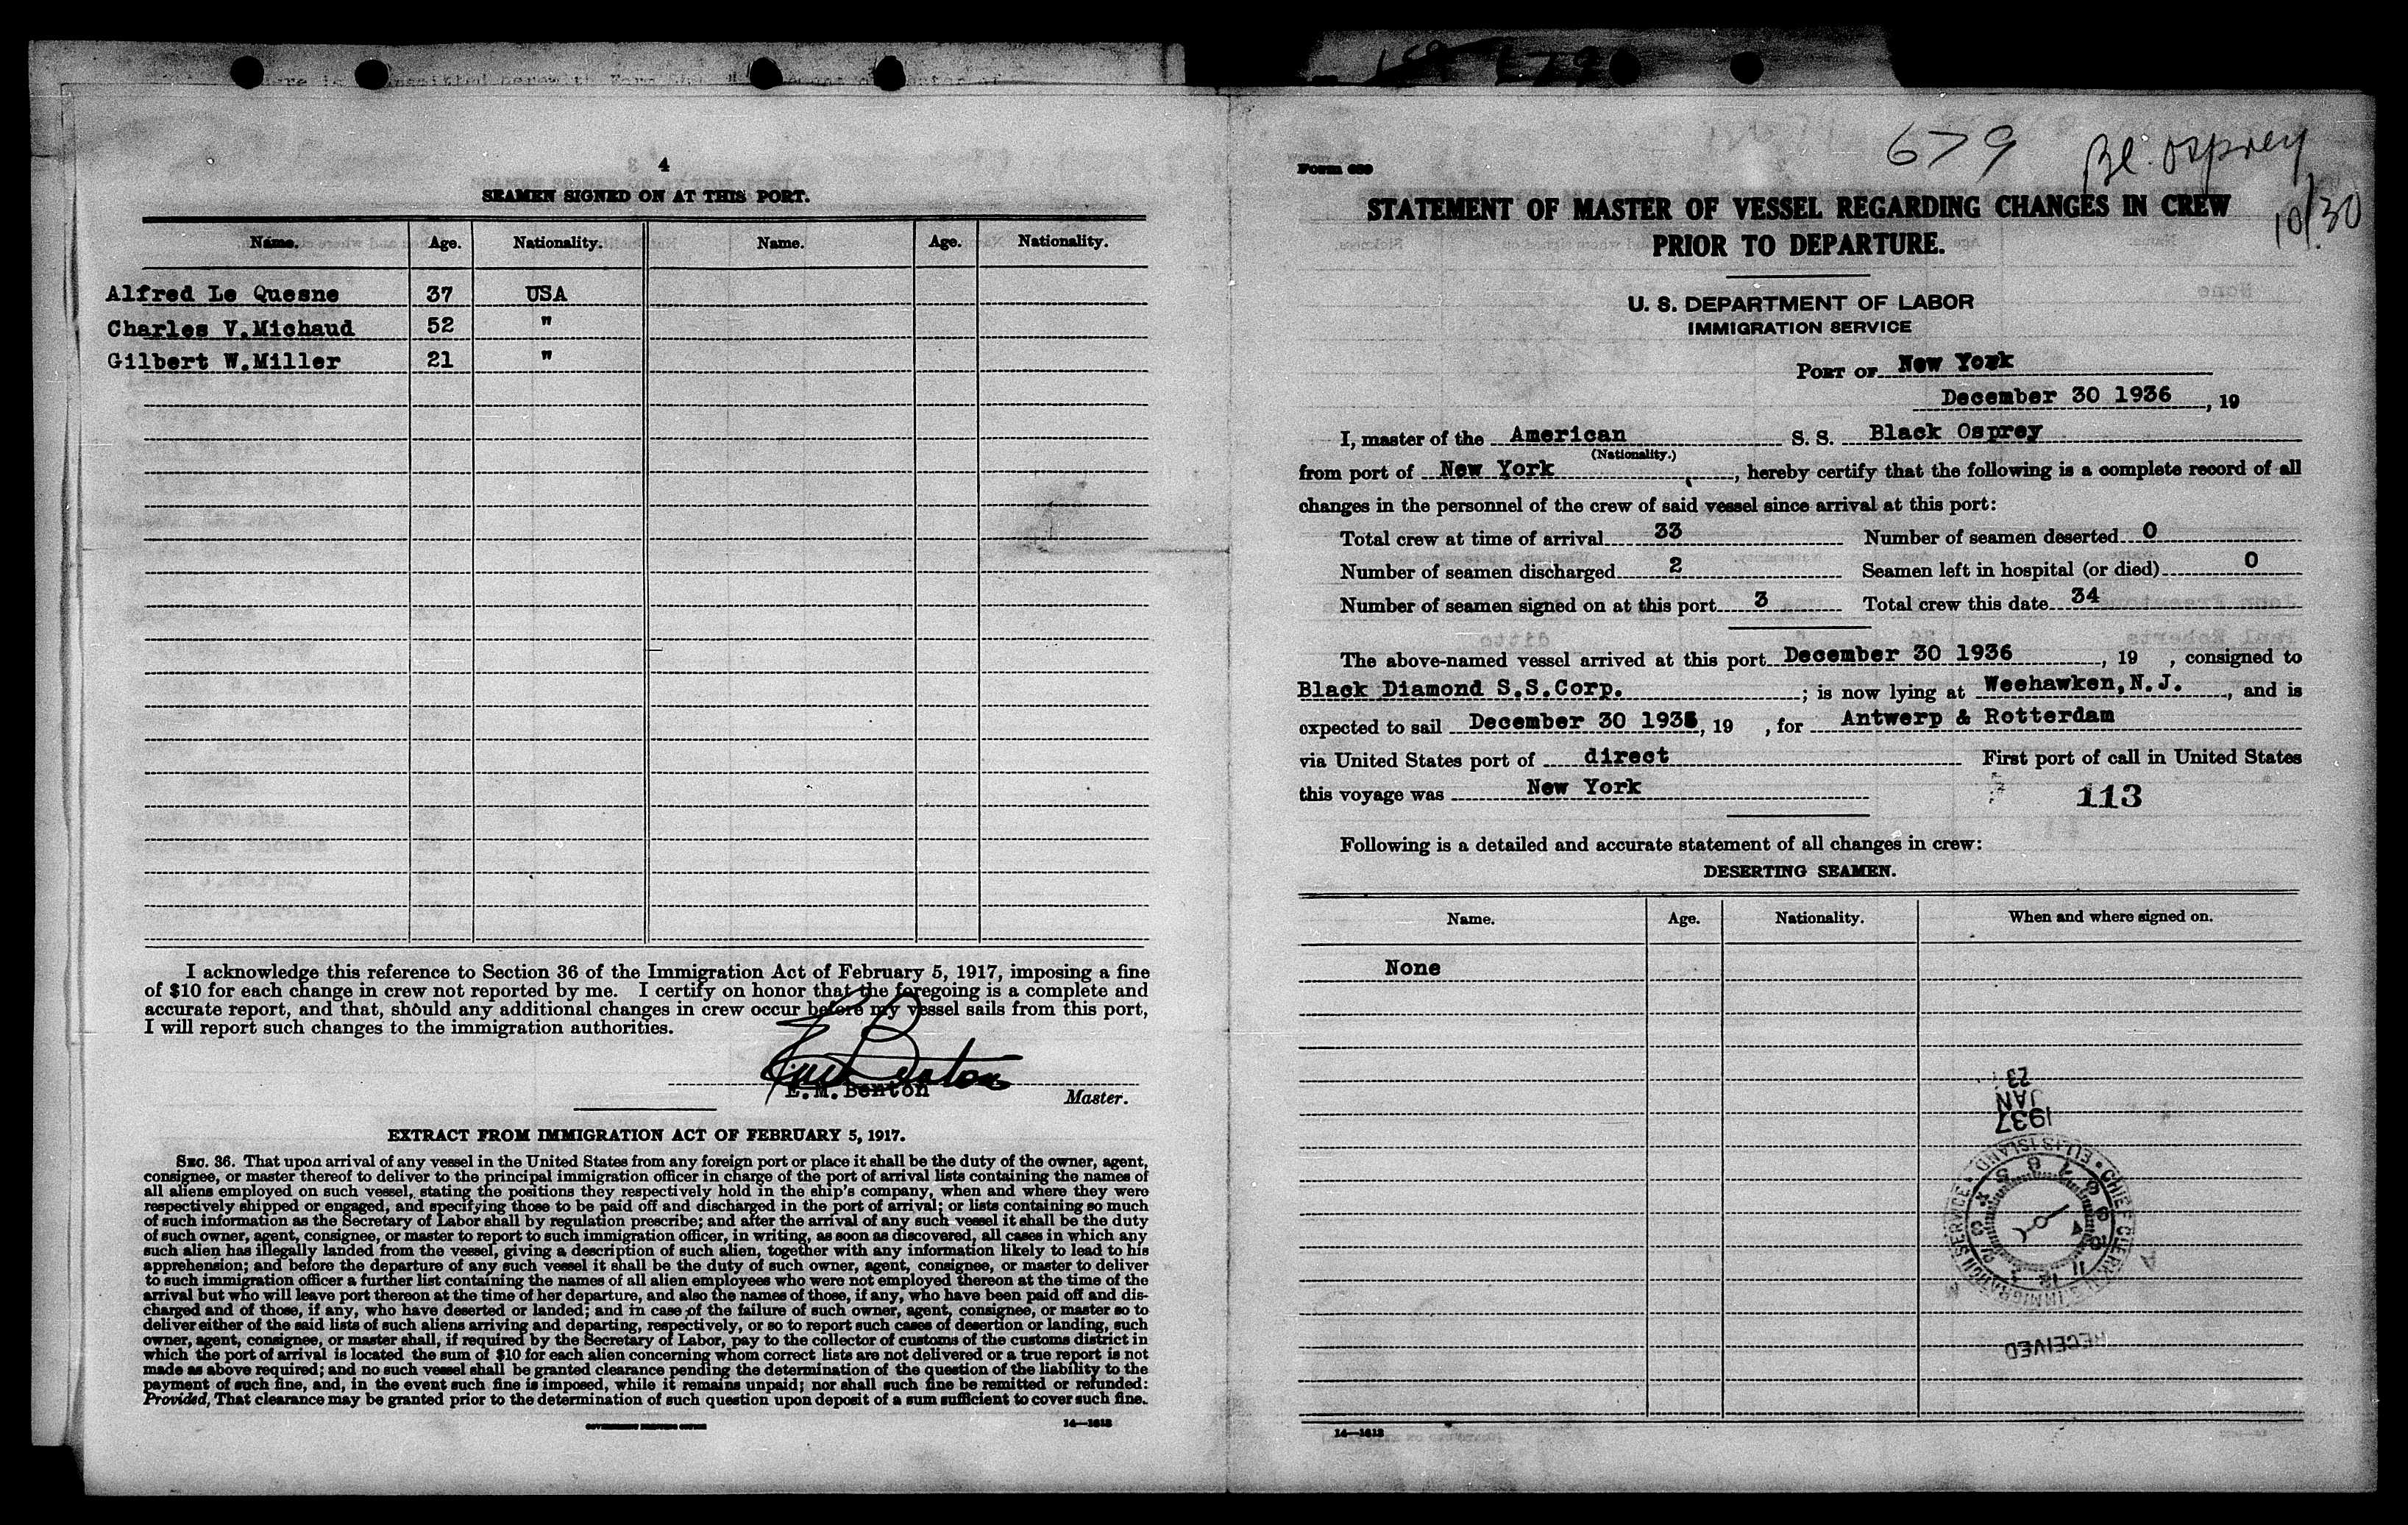 4
SEAMEN SIGNED ON AT THIS PORT.
Name. Age. Nationality. Name. Age. Nationality.
Alfred Le Quesne 37 USA
Charles V.Michaud 52 "
Gilbert W.Miller 21 "
I acknowledge this reference to Section 36 of the Immigration Act of February 5, 1917, imposing a fine
of $10 for each change in crew not reported by me. I certify on honor that the foregoing is a complete and
accurate report, and that, should any additional changes in crew occur before my vessel sails from this port,
I will report such changes to the immigration authorities.
E.M.Benton
Master.
EXTRACT FROM IMMIGRATION ACT OF FEBRUARY 5, 1917.
SEC. 36. That upon arrival of any vessel in the United States from any foreign port or place it shall be the duty of the owner, agent,
consignee, or master thereof to deliver to the principal immigration officer in charge of the port of arrival lists containing the names of
all aliens employed on such vessel, stating the positions they respectively hold in the ship's company, when and where they were
respectively shipped or engaged, and specifying those to be paid off and discharged in the port of arrival; or lists containing so much
of such information as the Secretary of Labor shall by regulation prescribe; and after the arrival of any such vessel it shall be the duty
of such owner, agent, consignee, or master to report to such immigration officer, in writing, as soon as discovered, all cases in which any
such alien has illegally landed from the vessel, giving a description of such alien, together with any information likely to lead to his
apprehension; and before the departure of any such vessel it shall be the duty of such owner, agent, consignee, or master to deliver
to such immigration officer a further list containing the names of all alien employees who were not employed thereon at the time of the
arrival but who will leave port thereon at the time of her departure, and also the names of those, if any, who have been paid off and dis-
charged and of those, if any, who have deserted or landed; and in case of the failure of such owner, agent, consignee, or master so to
deliver either of the said lists of such aliens arriving and departing, respectively, or so to report such cases of desertion or landing, such
owner, agent, consignee, or master shall, if required by the Secretary of Labor, pay to the collector of customs of the customs district in
which the port of arrival is located the sum of $10 for each alien concerning whom correct lists are not delivered or a true report is not
made as above required; and no such vessel shall be granted clearance pending the determination of the question of the liability to the
payment of such fine, and, in the event such fine is imposed, while it remains unpaid; nor shall such fine be remitted or refunded:
Provided, That clearance may be granted prior to the determination of such question upon deposit of a sum sufficient to cover such fine.
GOVERNMENT PRINTING OFFICE
14—1613
679 Bl. Osprey
10/30
Form 689
STATEMENT OF MASTER OF VESSEL REGARDING CHANGES IN CREW
PRIOR TO DEPARTURE.
U. S. DEPARTMENT OF LABOR
IMMIGRATION SERVICE
PORT OF New York
December 30 1936, 19
I, master of the American S. S. Black Osprey
(Nationality.)
from port of New York, hereby certify that the following is a complete record of all
changes in the personnel of the crew of said vessel since arrival at this port:
Total crew at time of arrival 33 Number of seamen deserted 0
Number of seamen discharged 2 Seamen left in hospital (or died) 0
Number of seamen signed on at this port 3 Total crew this date 34
The above-named vessel arrived at this port December 30 1936, 19 , consigned to
Black Diamond S.S.Corp. ; is now lying at Weehawken,N.J., and is
expected to sail December 30 1936, 19 , for Antwerp & Rotterdam
via United States port of direct First port of call in United States
this voyage was New York
113
Following is a detailed and accurate statement of all changes in crew:
DESERTING SEAMEN.
Name. Age. Nationality. When and where signed on.
None
23
JAN
1937
CHIEF CLERK U.S. IMMIGRATION SERVICE • ELLIS ISLAND •
RECEIVED
14—1613